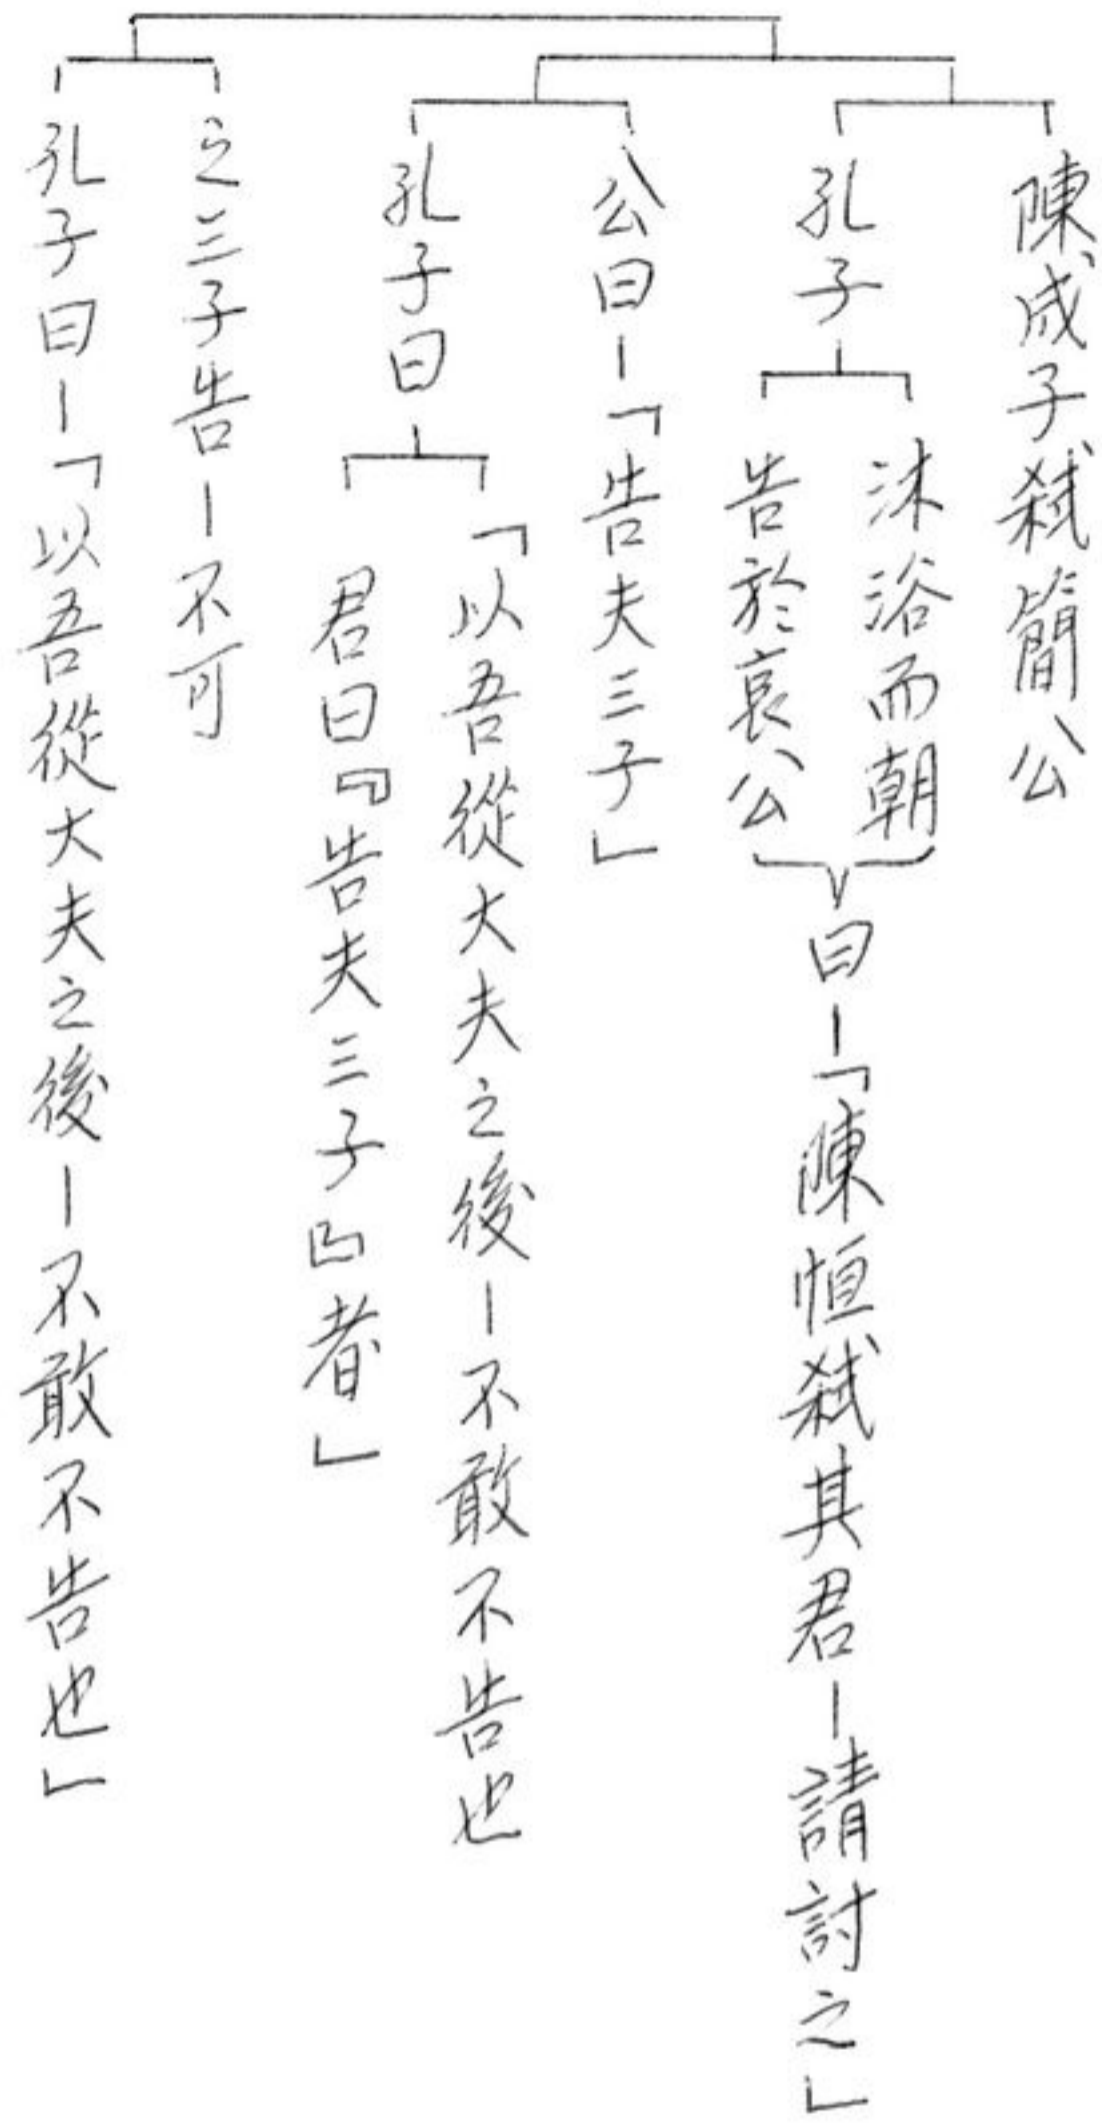 陳成子弒簡公
孔子
沐浴而朝
告於哀公
曰－「陳恒弒其君－請討之」
公曰－「告夫三子」
孔子曰
「以吾從大夫之後－不敢不告也
君曰『告夫三子』者」
之三子告－不可
孔子曰－「以吾從大夫之後－不敢不告也」